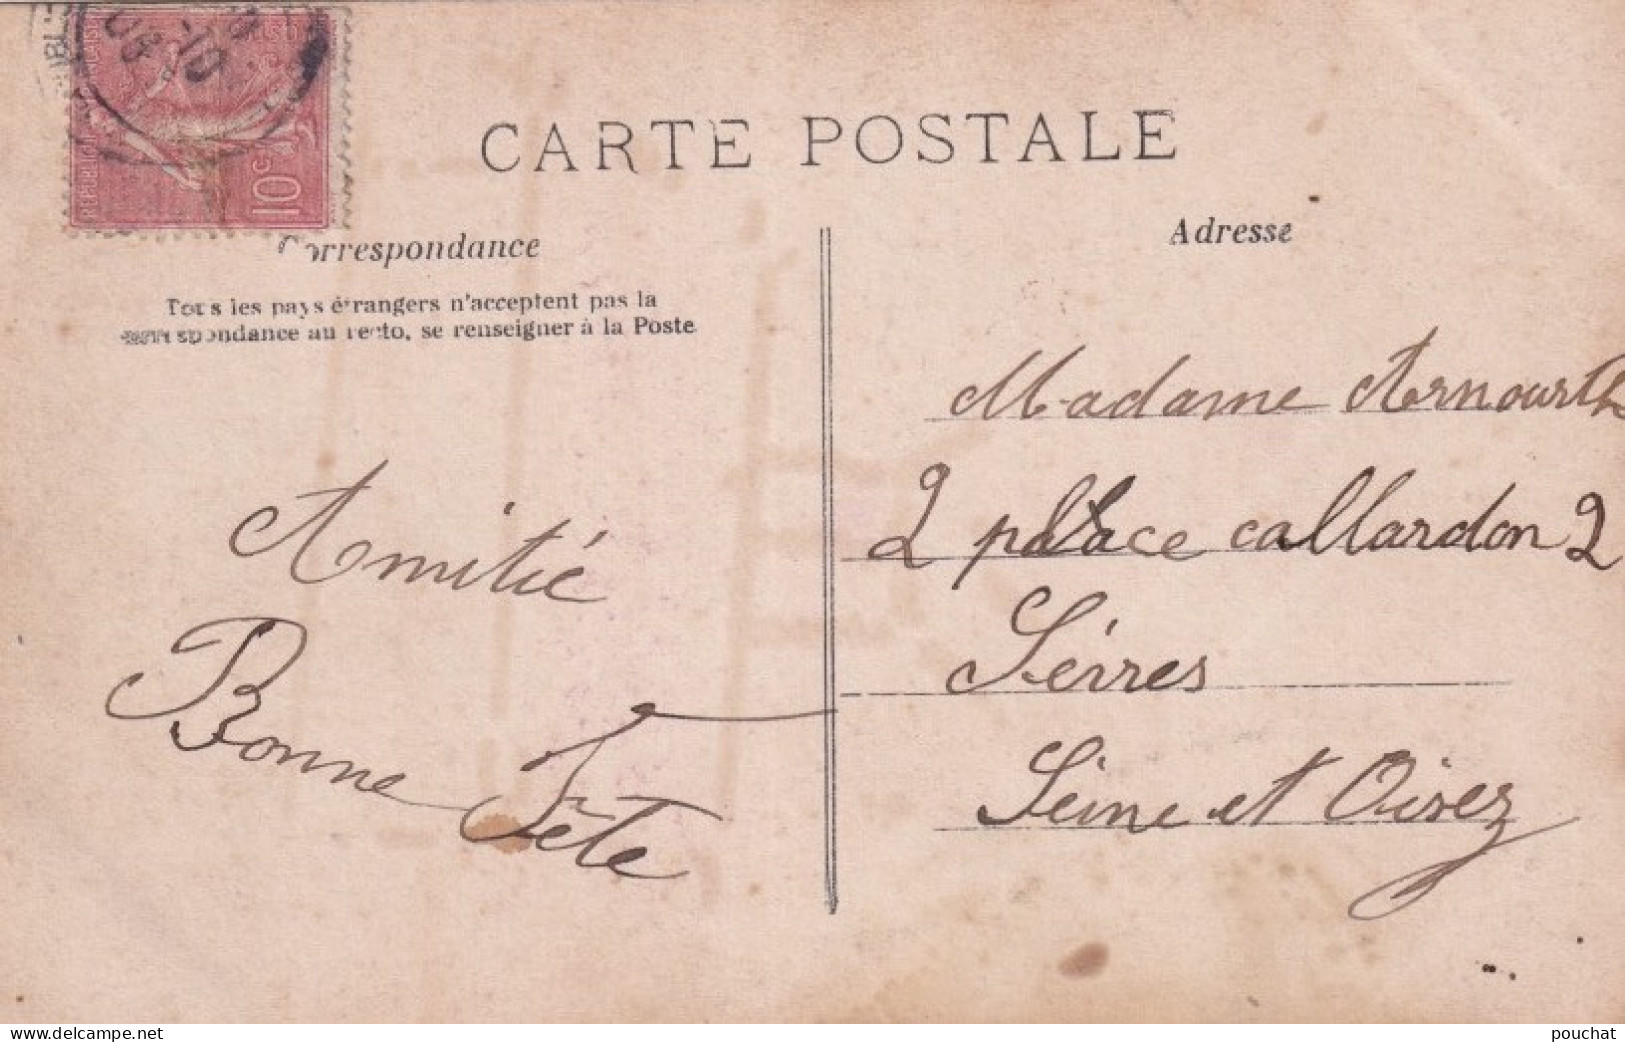 CARTE POSTALE
REPUBLIQUE
10c
Correspondance
Adresse
Tous les pays étrangers n'acceptent pas la
correspondance au recto, se renseigner à la Poste
Madame Arnourth
2 place callardon 2
Sèvres
Seine et Oisez
Amitié
Bonne Fête
www.delcampe.net
pouchat